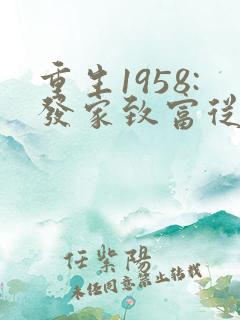 重生1958:
發家致富從
任紫陽
未經同意禁止轉載